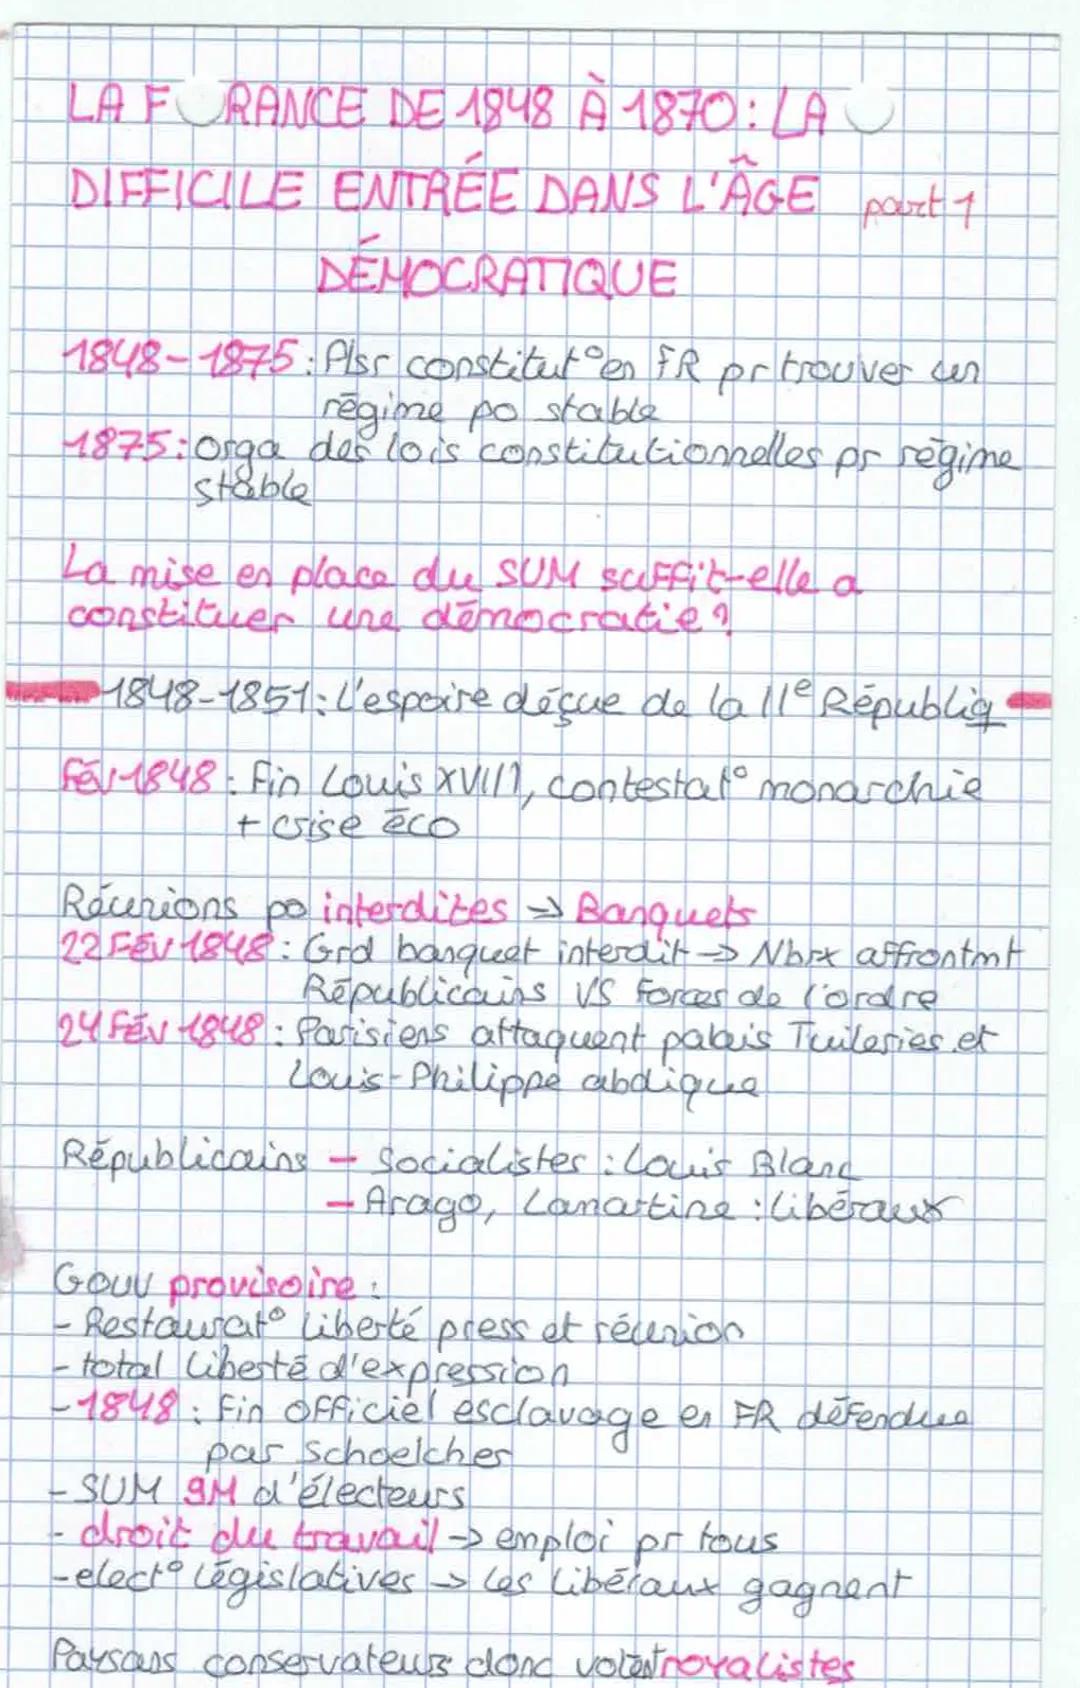 LA FRANCE DE 1848 À 1870 : LA
DIFFICILE ENTRÉE DANS L'ÂGE part 1
DÉMOCRATIQUE
1848-1875 : Plsr constitut° en FR pr trouver un
régime po stable
1875 : orga des lois constitutionnelles pr régime
stable
La mise en place du SUM suffit-elle a
constituer une démocratie ?
1848-1851 : L'espoire déçue de la IIe Républiq
Fév 1848 : Fin Louis XVIII, contestat° monarchie
+ crise éco
Réunions po interdites → Banquets
22 Fév 1848 : Grd banquet interdit → Nbrx affrontmt
Républicains VS Forces de l'ordre
24 Fév 1848 : Parisiens attaquent palais Tuileries et
Louis-Philippe abdique
Républicains - Socialistes : Louis Blanc
- Arago, Lamartine : libéraux
Gouv provisoire :
- Restaurat° liberté press et réunion
- total liberté d'expression
- 1848 : Fin officiel esclavage en FR défendue
par Schoelcher
- SUM 9M d'électeurs
- droit du travail → emploi pr tous
- elect° législatives → les libéraux gagnent
Paysans conservateurs donc votent royalistes